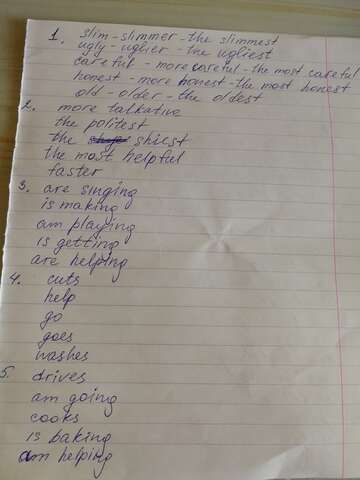 1. slim - slimmer - the slimmest
ugly - uglier - the ugliest
careful - more careful - the most careful
honest - more honest - the most honest
old - older - the oldest
2. more talkative
the politest
the shiest
the most helpful
faster
3. are singing
is making
am playing
is getting
are helping
4. cuts
help
go
goes
washes
5. drives
am going
cooks
is baking
am helping